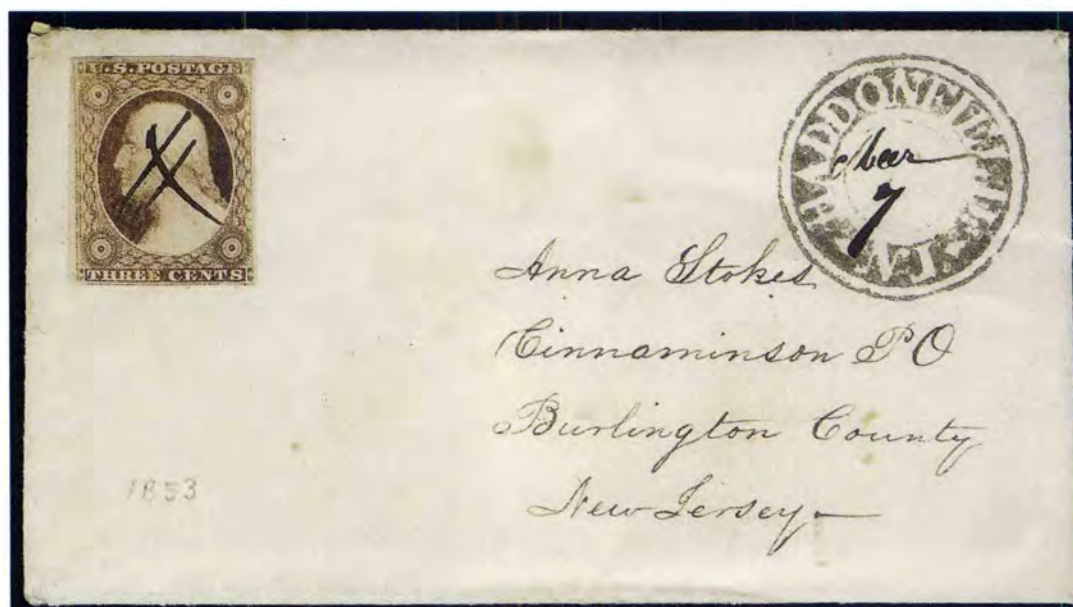 U.S. POSTAGE
THREE CENTS
HADDONFIELD
N.J.
Mar
7
Anna Stokes
Cinnaminson PO
Burlington County
New Jersey
1853